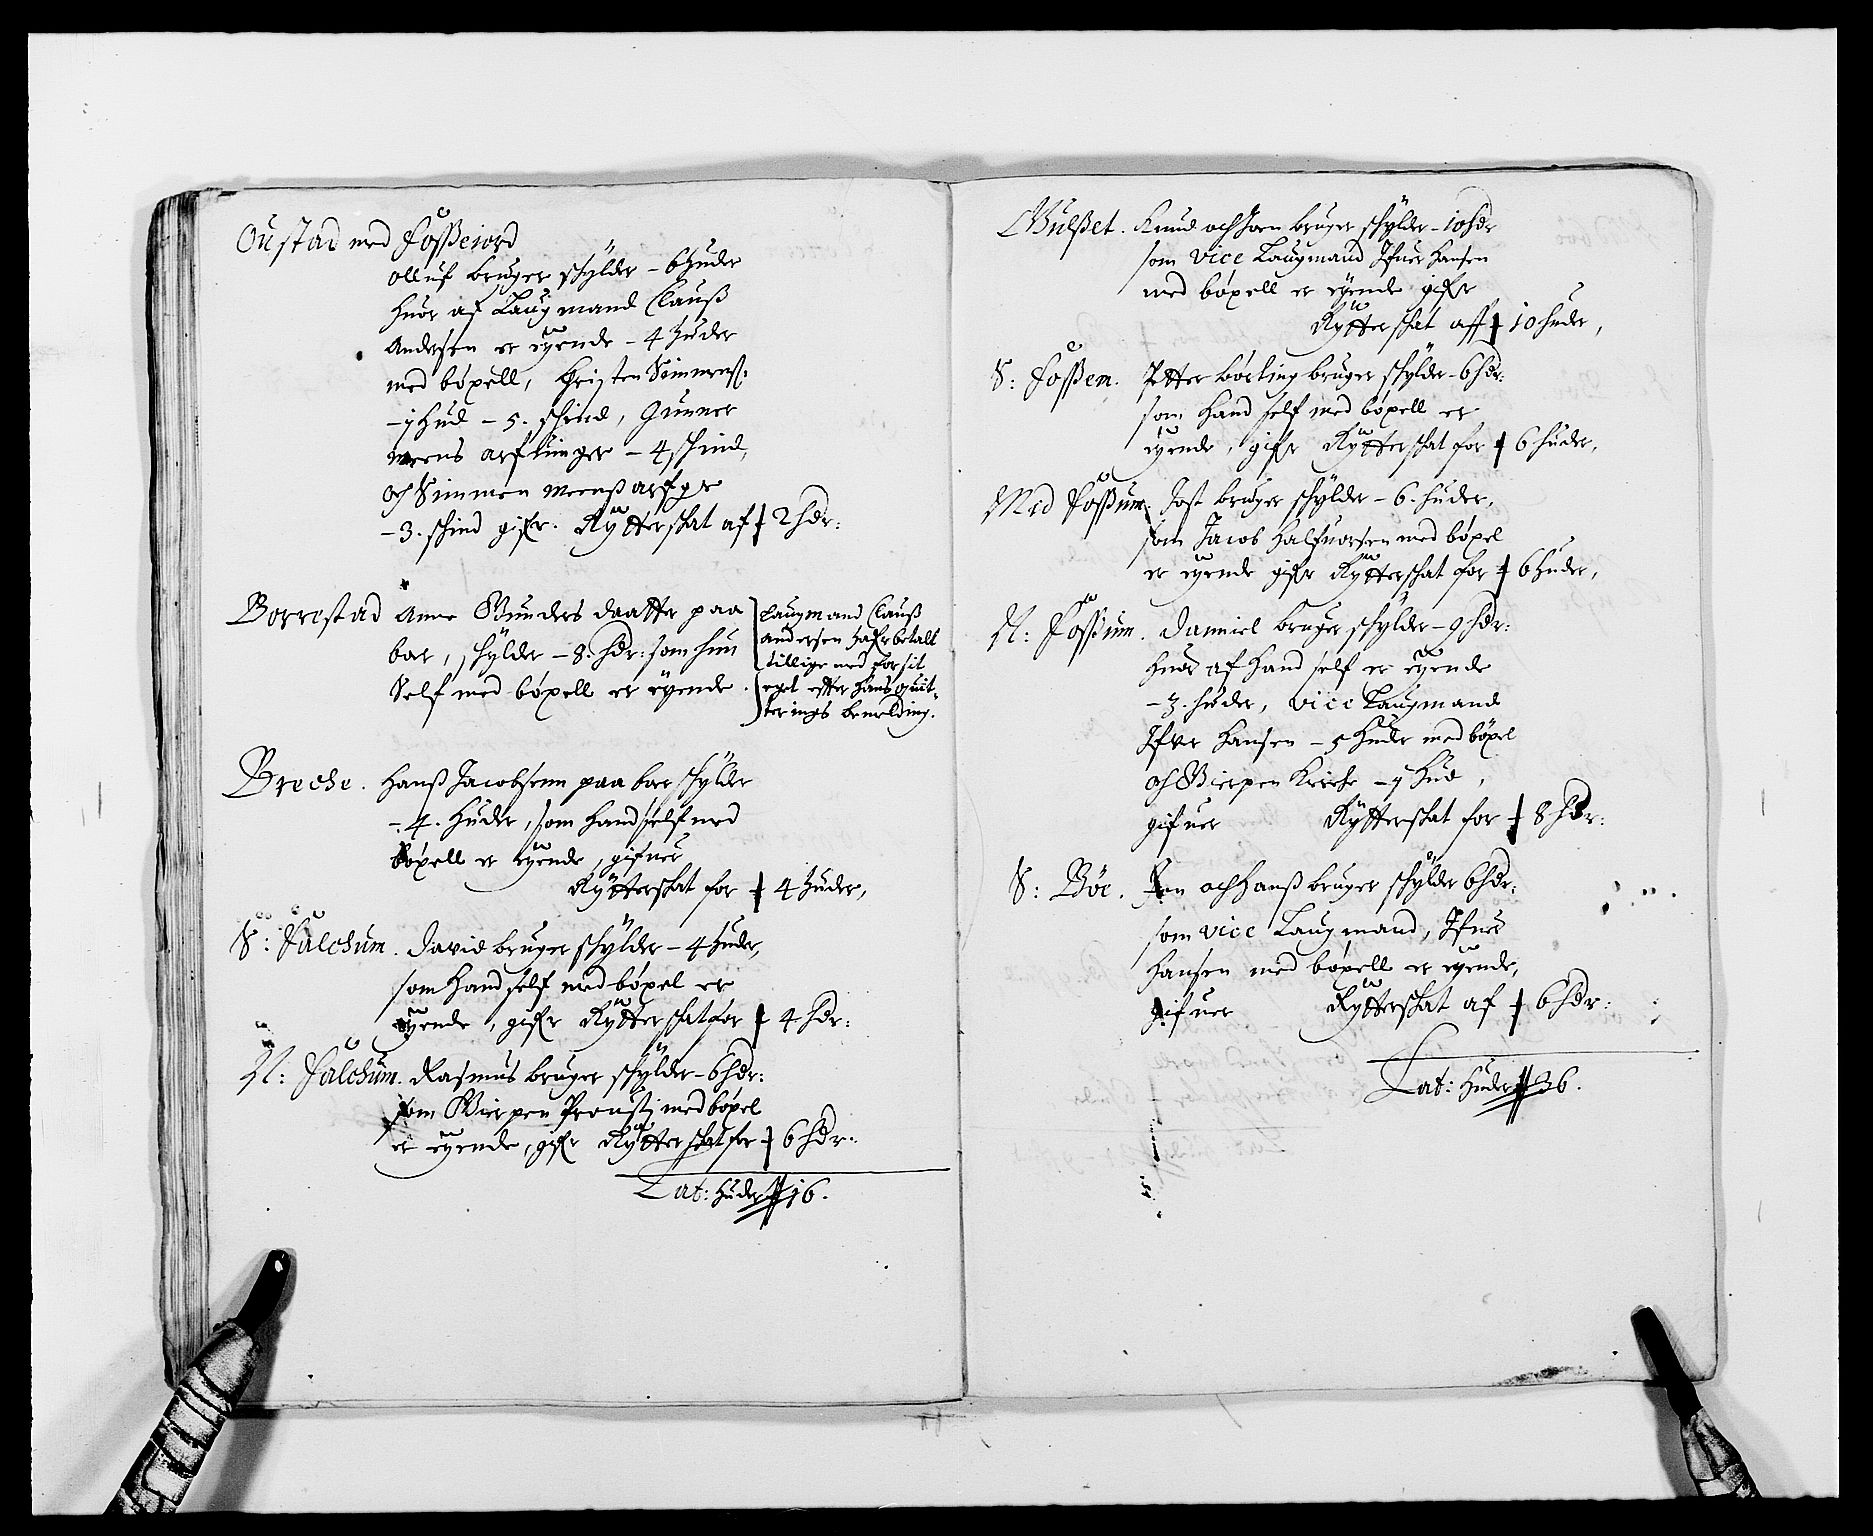 Oustad med Fosseiord
Olluf bruger schylder - 6 huder
huor af Laugmand Clauß
Andersen er eyende - 4 huder
med böxell, Christen Simmenß:
- 1 Hud - 5. schind, Gunner
Meens arfuinger - 4 schind,
och Simmen Meenß arfger
- 3. schind gifr. Rÿtterskat af 2 hdr:
Borrestad Anne Gunders daatter paa
boer, schylder - 8. hdr: som hun
Self med böxell er eyende.
Laugmand Clauß
andersen hafr betalt
tillige med for sit
eget efter hans quit-
terings bemelding.
Breche. Hanß Jacobsenn paa boer schylder
- 4. huder, som hand self med
böxell er eyende, gifuer
Rÿtterskat for 4 huder,
S: Falchum. David bruger schylder - 4 huder,
som hand self med böxel er
eyende, gifr Rÿtterskat for 4 hdr:
N: Falchum. Rasmus bruger schylder - 6 hdr:
som Gierpen Prousti med böxel
er eyende, gifr Rÿtterskat for 6 hdr:
Lat: huder 16.
Gulßet. Knud och Joen bruger schylder - 10 hdr
som vice Laugmand Ifuer Hansen
med böxell er eyende gifr
Rÿtterskat aff 10 huder,
S: Foßem. Petter Börting bruger schylder - 6 hdr:
som hand self med böxell er
eyende, gifr Rÿtterskat for 6 huder,
Med Foßum. Jost bruger schylder - 6. huder,
som Jacob Halfuorsen med böxel
er eyende gifr Rÿtterschat for 6 huder,
N: Foßum. Danniel bruger schylder - 9 hdr:
huor af hand self er eyende
- 3. huder, vice Laugmand
Ifver Hansen - 5 huder med böxel
och Gierpen Kirche - 1 hud,
gifuer Rÿtterskat for 8 hdr:
S: Böe. Jon och Hanß bruger schylder 6 hdr:
som vice Laugmand, Ifuer
Hansen med böxell er eyende,
gifuer Rÿtterskat af 6 hdr:
Lat: huder 36.